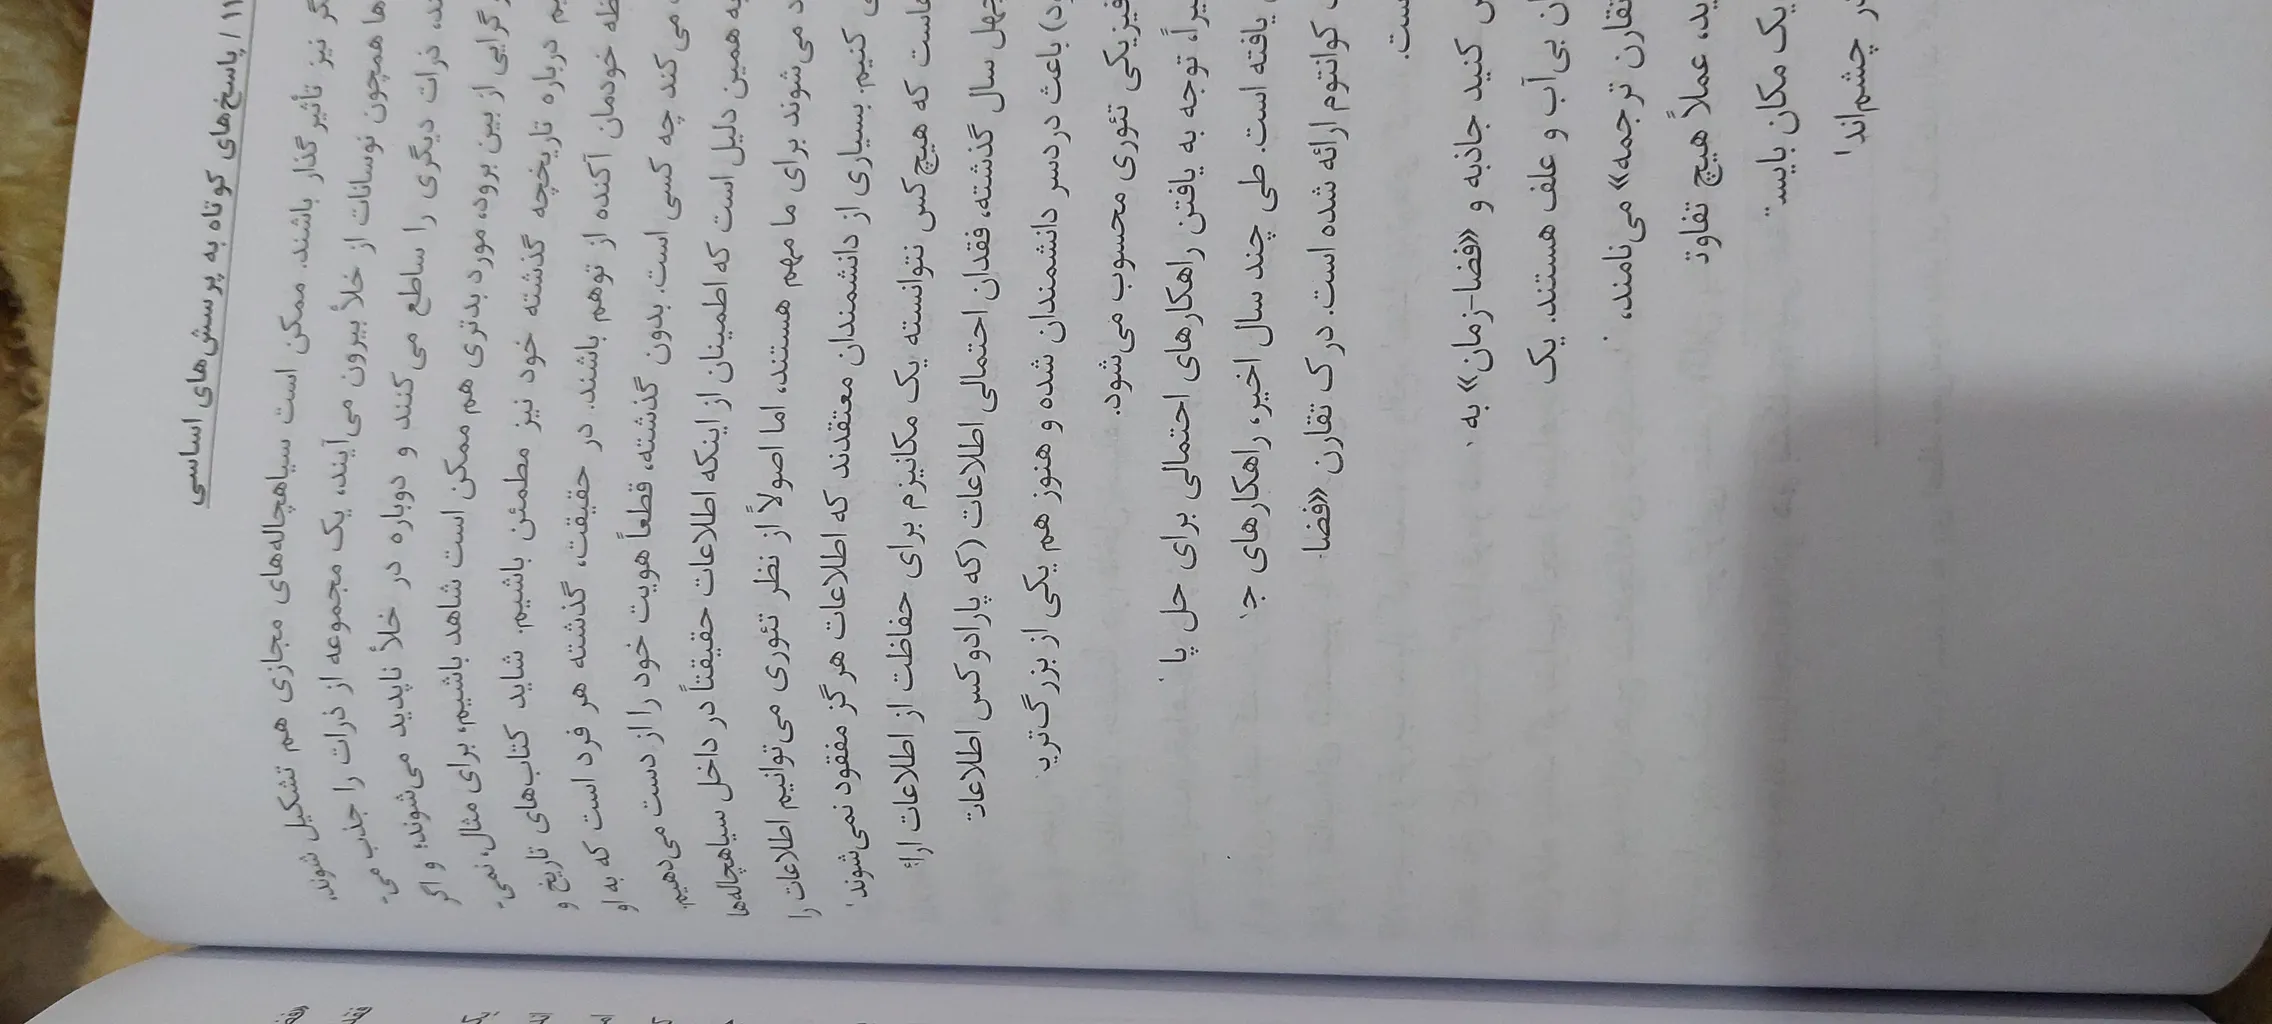 ۱۱ / پاسخ‌های کوتاه به پرسش‌های اساسی
نیز تأثیرگذار باشند. ممکن است سیاهچاله‌های مجازی هم تشکیل شوند،
همچون نوسانات از خلأ بیرون می‌آیند، یک مجموعه از ذرات را جذب می‌
ذرات دیگری را ساطع می‌کنند و دوباره در خلأ ناپدید می‌شوند؛ و اگر
گرایی از بین برود، مورد بدتری هم ممکن است شاهد باشیم؛ برای مثال، نمی‌
درباره تاریخچه گذشته خود نیز مطمئن باشیم. شاید کتاب‌های تاریخ و
خودمان آکنده از توهم باشند. در حقیقت، گذشته هر فرد است که به او
می‌کند چه کسی است. بدون گذشته، قطعاً هویت خود را از دست می‌دهیم.
به همین دلیل است که اطمینان از اینکه اطلاعات حقیقتاً در داخل سیاهچاله‌ها
می‌شوند برای ما مهم هستند، اما اصولاً از نظر تئوری می‌توانیم اطلاعات را
کنیم. بسیاری از دانشمندان معتقدند که اطلاعات هرگز مفقود نمی‌شوند
که هیچ‌کس نتوانسته یک مکانیزم برای حفاظت از اطلاعات
چهل سال گذشته، فقدان احتمالی اطلاعات (که پارادوکس اطلاعات
باعث دردسر دانشمندان شده و هنوز هم یکی از
فیزیکی تئوری محسوب می‌شود.
توجه به یافتن راهکارهای احتمالی برای حل
یافته است. طی چند سال اخیر، راهکارهای
کوانتوم ارائه شده است. درک تقارن «فضا
کنید جاذبه و «فضا-زمان» به
بی‌آب و علف هستند. یک
تقارن ترجمه» می‌نامند،
عملاً هیچ تفاوت
یک مکان
چشم‌اند